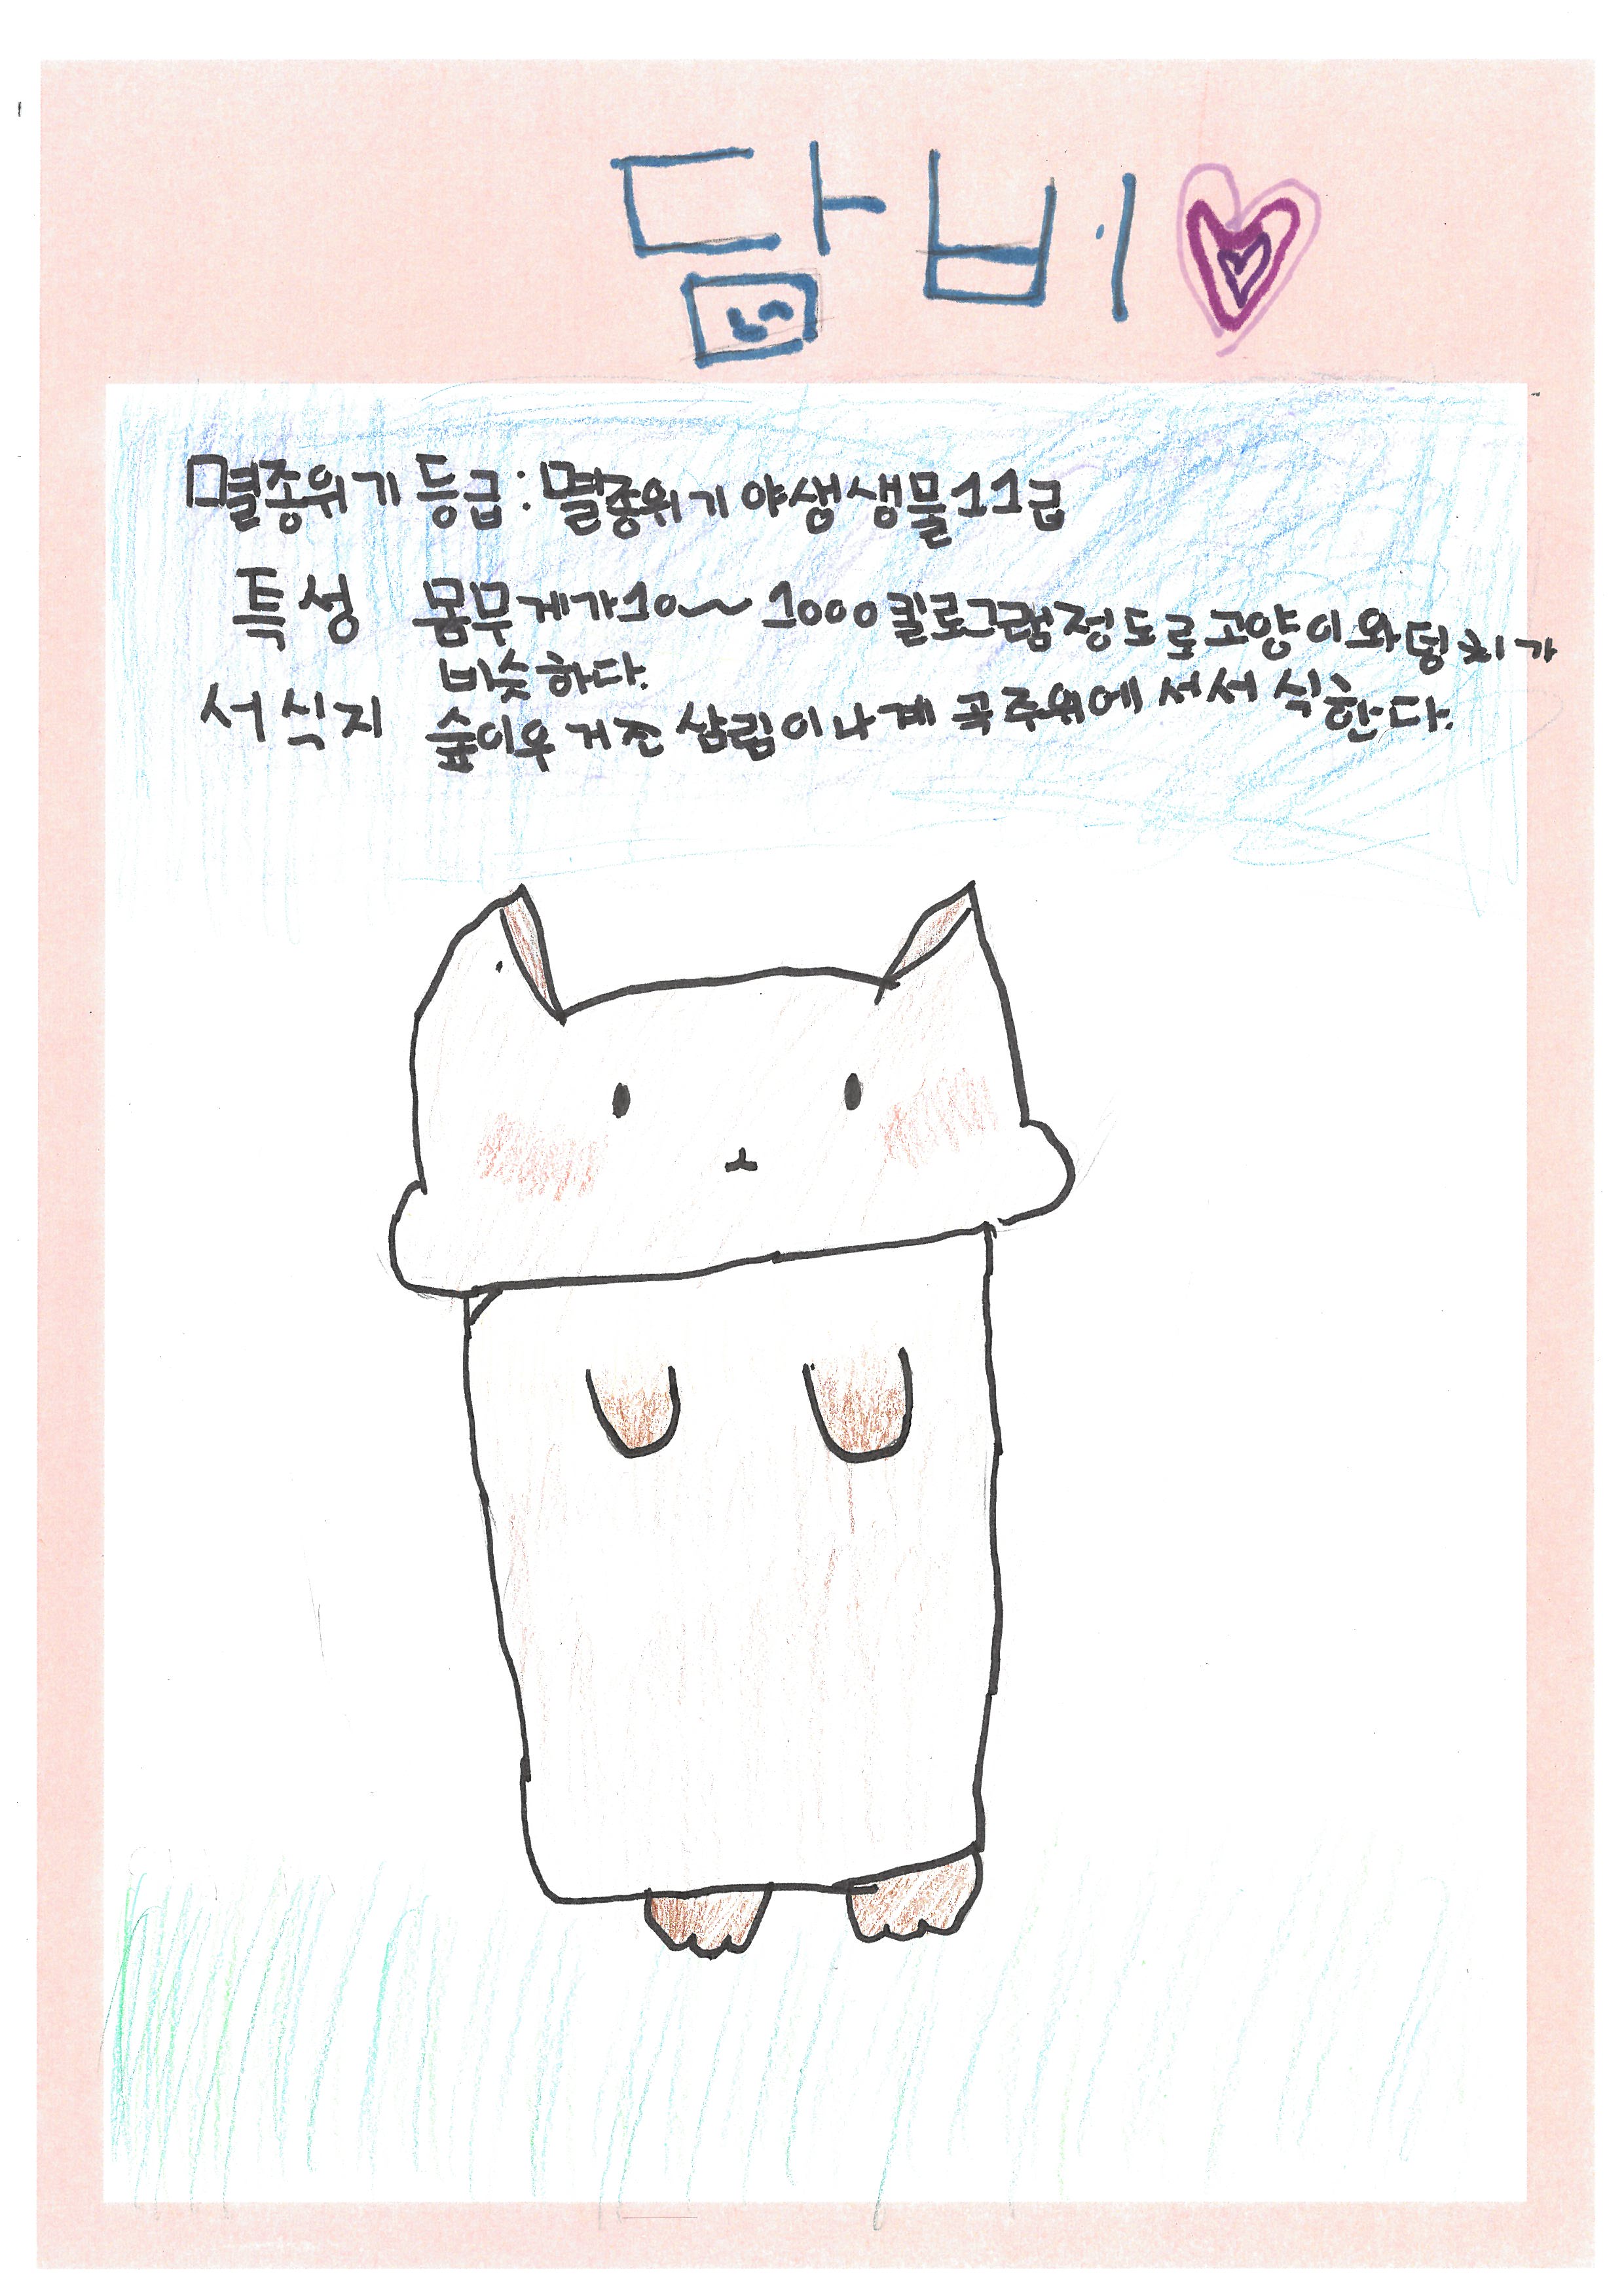 담비
멸종위기 등급: 멸종위기 야생생물11급
특성 몸무게가10~1000킬로그램정도로고양이와덩치가
비슷하다.
서식지 숲이우거진 삼림이나계곡주위에서서식한다.